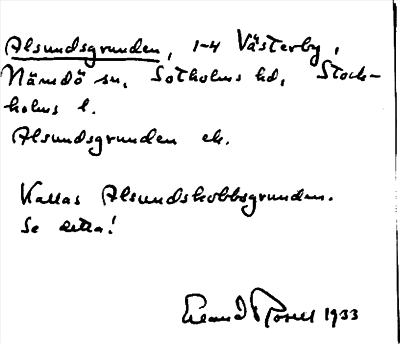 Alsundsgrunden, 1-4 Västerby,
Nämdö sn, Sotholms hd, Stock-
holms l.
Alsundsgrunden ek.
Kallas Alsundskobbsgrunden.
Se detta!
1933